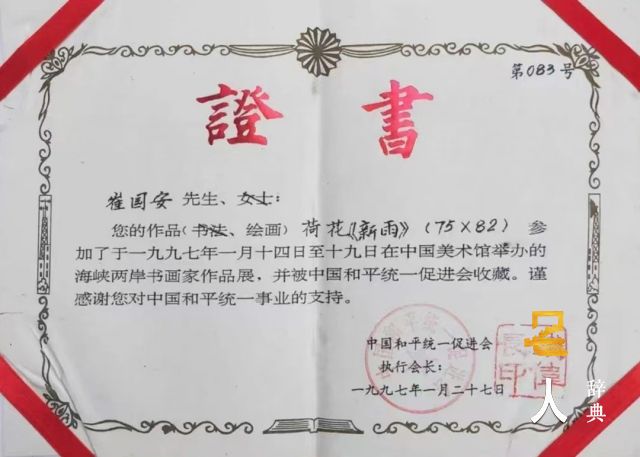 第083号
證書
崔国安 先生、女士：
您的作品（书法、绘画）荷花《新雨》（75×82）参
加了于一九九七年一月十四日至十九日在中国美术馆举办的
海峡两岸书画家作品展，并被中国和平统一促进会收藏。谨
感谢您对中国和平统一事业的支持。
中国和平统一促进会
执行会长：
一九九七年一月二十七日
人 辞典